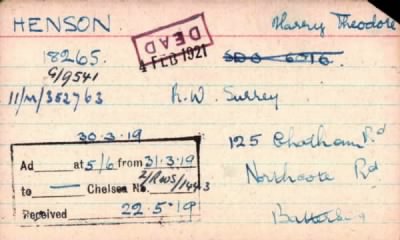 HENSON. Harry Theodore
DEAD
4 FEB 1921
18265.
G/9541
11/M/352763 R.W. Surrey
30.3.19 125 Chatham Rd
Ad at 5/6 from 31.3.19 Northcote Rd
to — Chelsea No. 2/RWS/1443
Received 22.5.19 Battersea